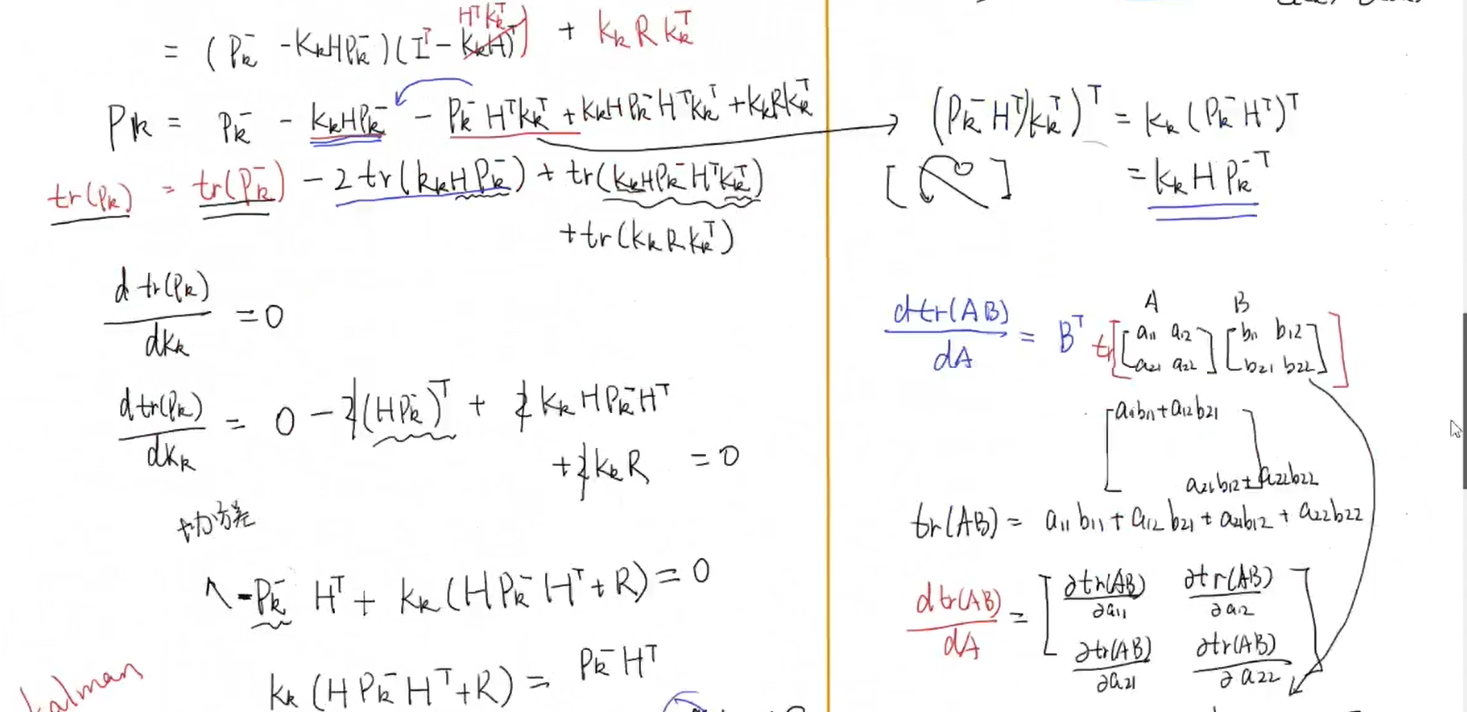 = (Pₖ⁻ - KₖHPₖ⁻)(Iᵀ - KₖH)ᵀ) + KₖRKₖᵀ
HᵀKₖᵀ
Pₖ = Pₖ⁻ - KₖHPₖ⁻ - Pₖ⁻HᵀKₖᵀ + KₖHPₖ⁻HᵀKₖᵀ + KₖRKₖᵀ
tr(Pₖ) = tr(Pₖ⁻) - 2tr(KₖHPₖ⁻) + tr(KₖHPₖ⁻HᵀKₖᵀ)
+ tr(KₖRKₖᵀ)
d tr(Pₖ)
dKₖ
= 0
d tr(Pₖ)
dKₖ
= 0 - 2(HPₖ⁻)ᵀ + 2KₖHPₖ⁻Hᵀ
+ 2KₖR = 0
协方差
-Pₖ⁻Hᵀ + Kₖ(HPₖ⁻Hᵀ + R) = 0
Kₖ(HPₖ⁻Hᵀ + R) = Pₖ⁻Hᵀ
kalman
(Pₖ⁻Hᵀ)Kₖᵀ)ᵀ = Kₖ(Pₖ⁻Hᵀ)ᵀ
= KₖHPₖ⁻ᵀ
dtr(AB)
dA
= Bᵀ
A B
tr[[a₁₁ a₁₂] [b₁₁ b₁₂]
[a₂₁ a₂₂] [b₂₁ b₂₂]]
[a₁₁b₁₁ + a₁₂b₂₁
a₂₁b₁₂ + a₂₂b₂₂]
tr(AB) = a₁₁b₁₁ + a₁₂b₂₁ + a₂₁b₁₂ + a₂₂b₂₂
dtr(AB)
dA
=
∂tr(AB) ∂tr(AB)
∂a₁₁ ∂a₁₂
∂tr(AB) ∂tr(AB)
∂a₂₁ ∂a₂₂